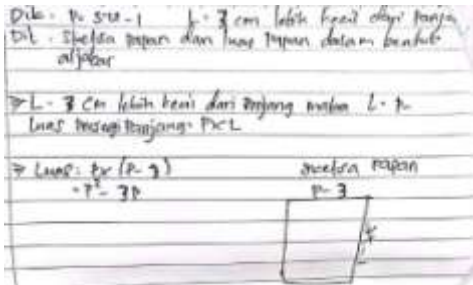 Dik : P = 
L = 3 cm lebih kecil dari panja
Dit : Sketsa papan dan luas papan dalam bentuk
aljabar
⇒ L = 3 cm lebih kecil dari panjang maka L = P-
Luas Persegi Panjang = P×L
⇒ Luas : P× (P-3)
= P² - 3P
Sketsa papan
P-3